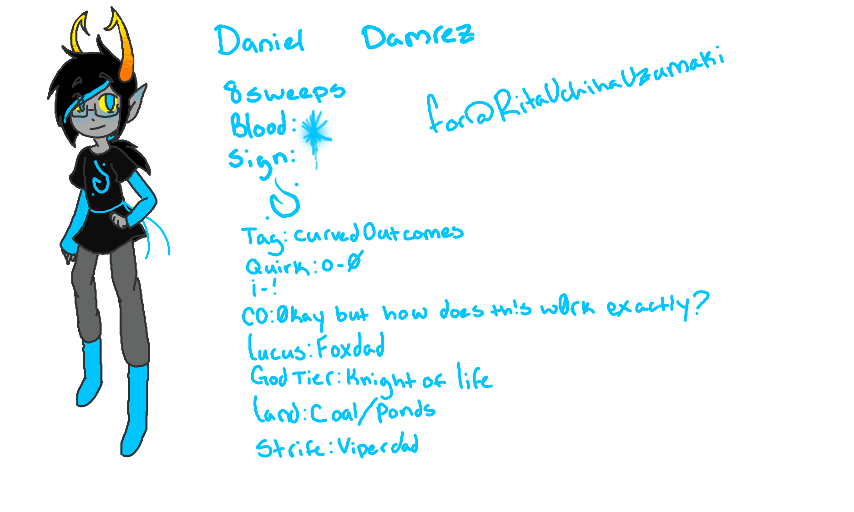 Daniel Damrez
for@RitaUchihaUzumaki
8 sweeps
Blood:
Sign:
Tag: curvedOutcomes
Quirk: o-Ø
i-!
CO: Økay but how does th!s wØrk exactly?
Lucus: Foxdad
God Tier: Knight of life
Land: Coal/Ponds
Strife: Viperdad